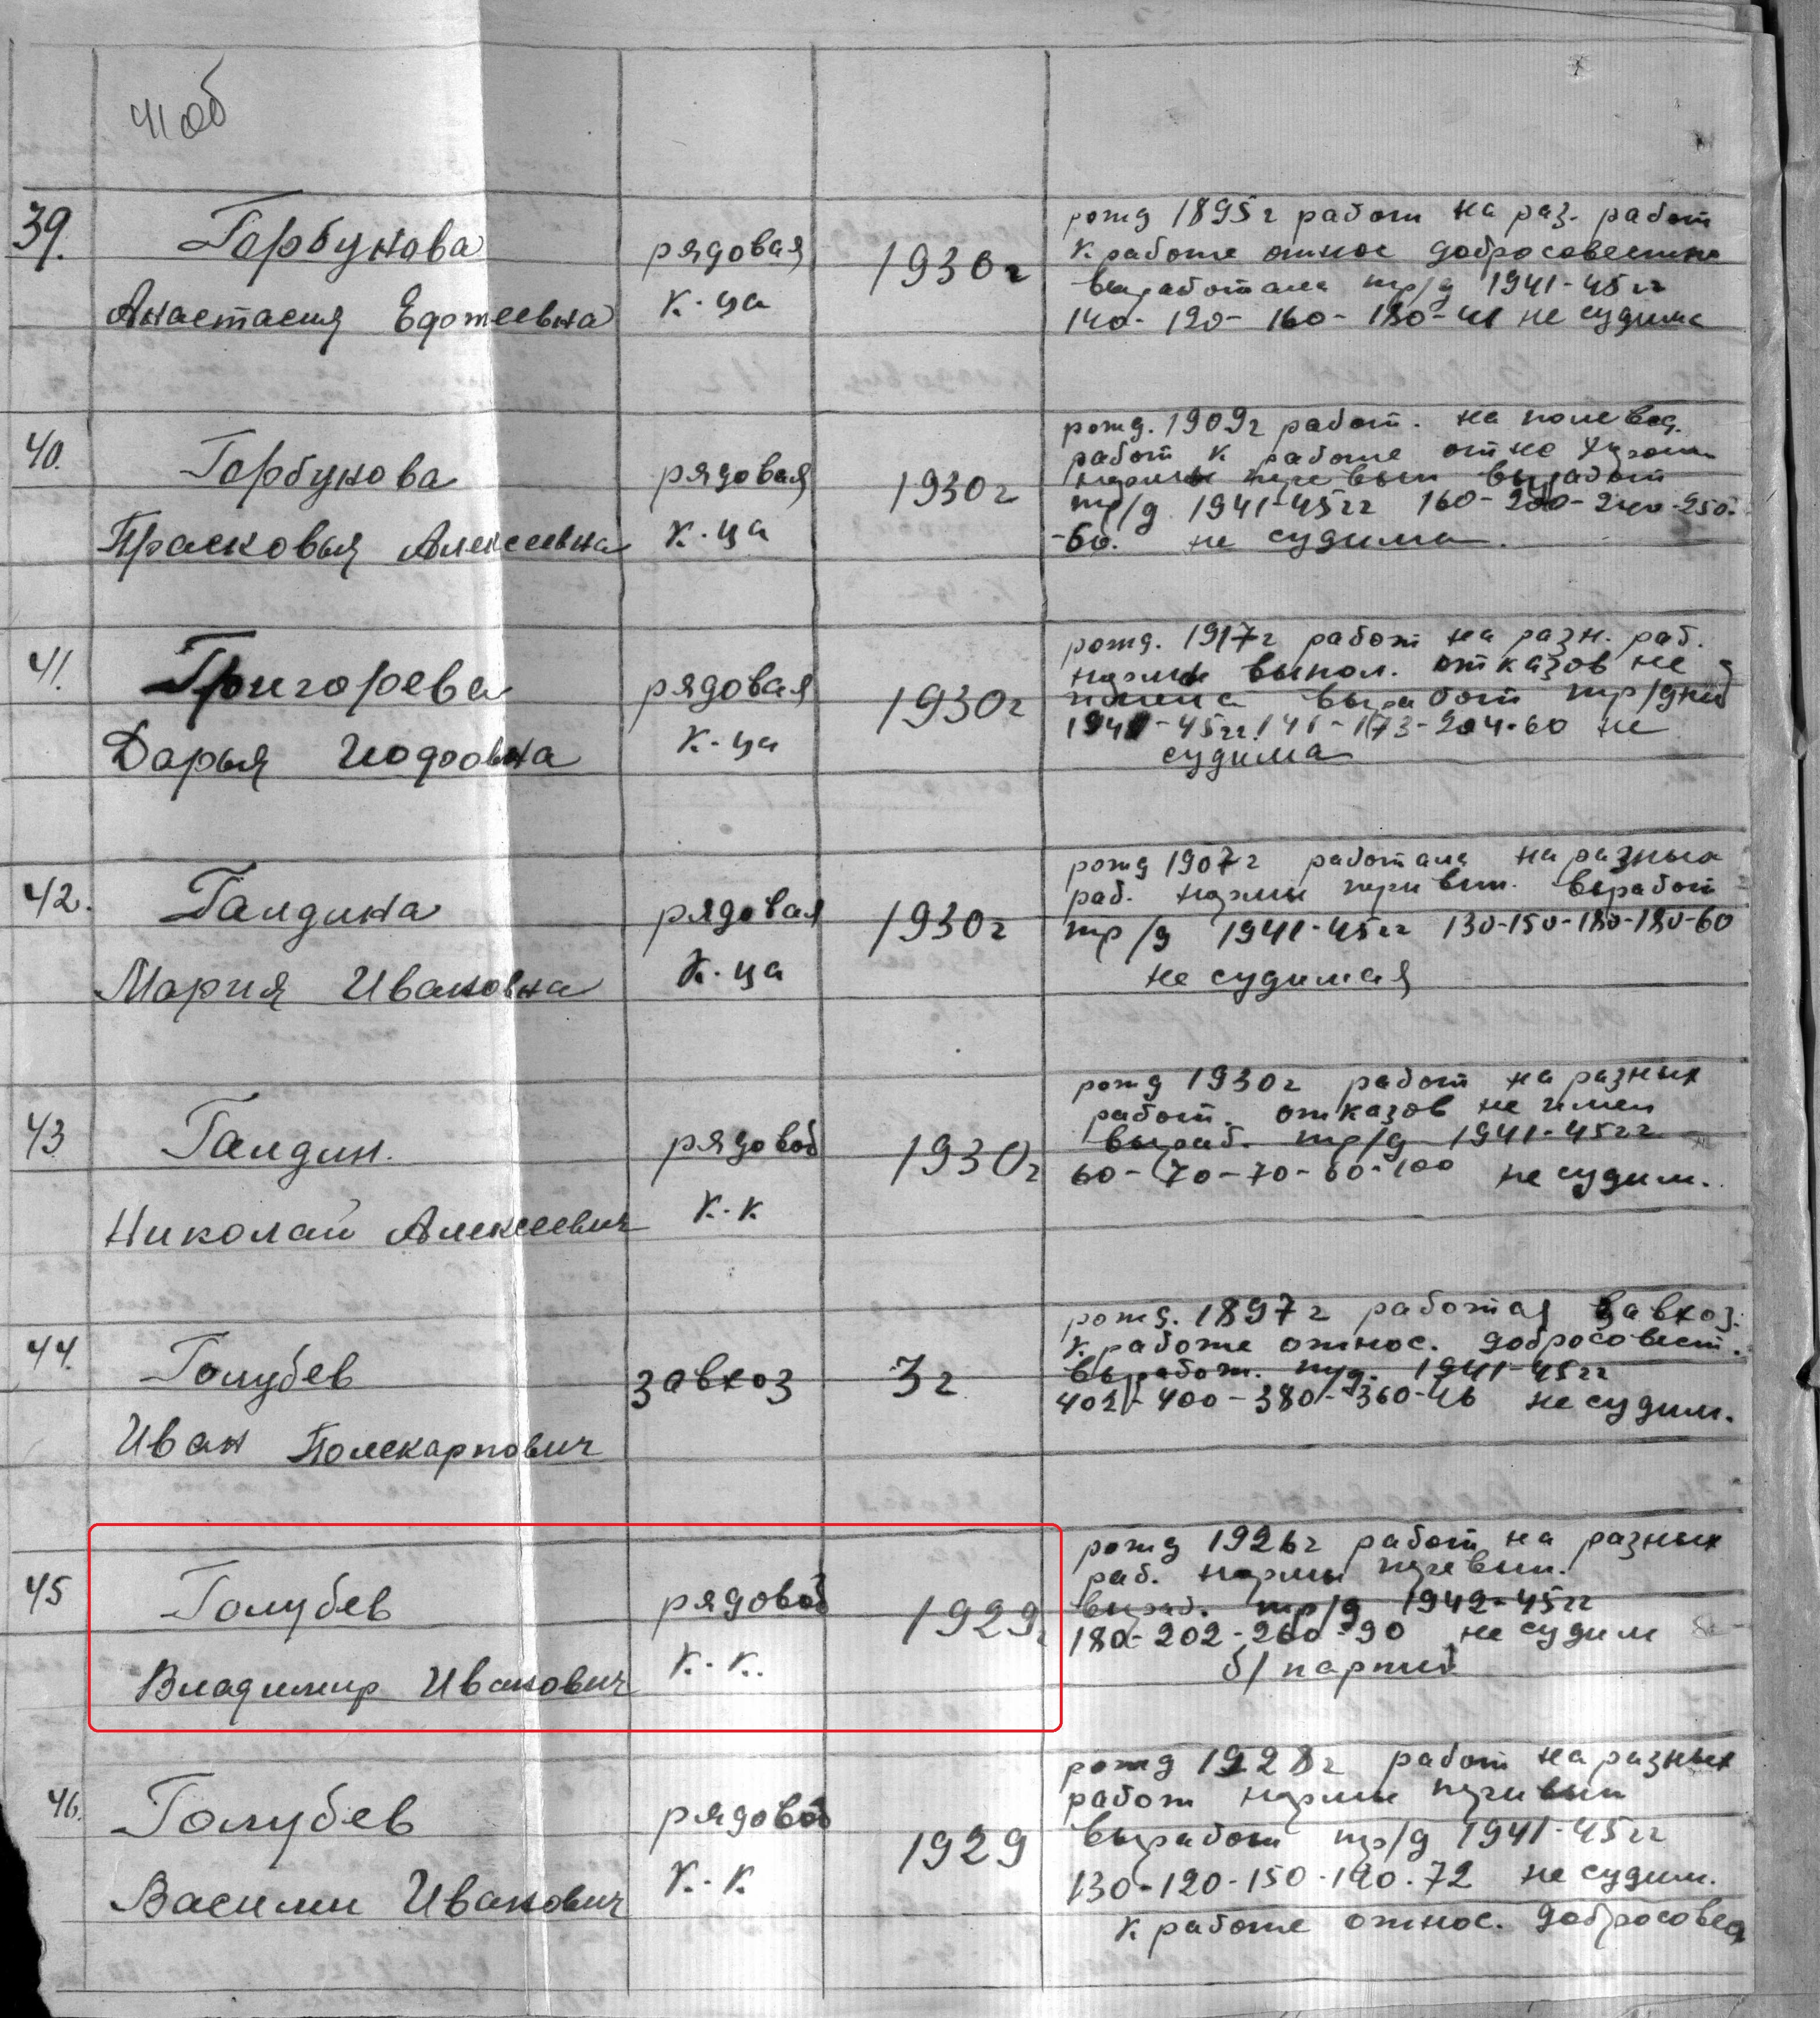 41 об
39.
Горбунова
Анастасия Едотеевна
рядовая
к-ца
1930г
рожд 1895г работ на раз. работ
к работе относ добросовестно
выработала тр/д 1941-45 гг
140- 120- 160- 180-41 не судима
40.
Горбунова
Прасковья Алексеевна
рядовая
к-ца
1930г
рожд. 1909г работ. на полевод.
работ к работе отно
нормы перевып выработ
тр/д 1941-45гг 160-200-240-250-
-60. не судима.
41.
Григорева
Дарья
рядовая
к-ца
1930г
рожд. 1917г работ на разн. раб.
нормы выпол. отказов не
имела выработ тр/дней
1941-45гг. 141-173-204-60 не
судима
42.
Галдина
Мария Ивановна
рядовая
к-ца
1930г
рожд 1907г работала на разных
раб. нормы перивып. выработ
тр/д 1941-45гг 130-150-180-180-60
не судимая
43
Галдин.
Николай Алексеевич
рядовой
к-к
1930г
рожд 1930г работ на разных
работ. отказов не имел
выраб. тр/д 1941-45гг
60-70-70-60-100 не судим.
44.
Голубев
Иван Поликарпович
завхоз
3г
рожд. 1897г работал завхоз.
к работе относ. добросовест.
выработ. т/д. 1941-45гг
402-400-380-360-46 не судим.
45
Голубев
Владимир Иванович
рядовой
к-к.
1929г
рожд 1926г работ на разных
раб. нормы перевып.
выраб. тр/д 1942-45гг
180-202-260-90 не судим
б/партий
46.
Голубев
Василий Иванович
рядовой
к-к
1929
рожд 1928г работ на разных
работ нормы перивып
выработ тр/д 1941-45гг
130-120-150-190-72 не судим.
к работе относ. добросовес